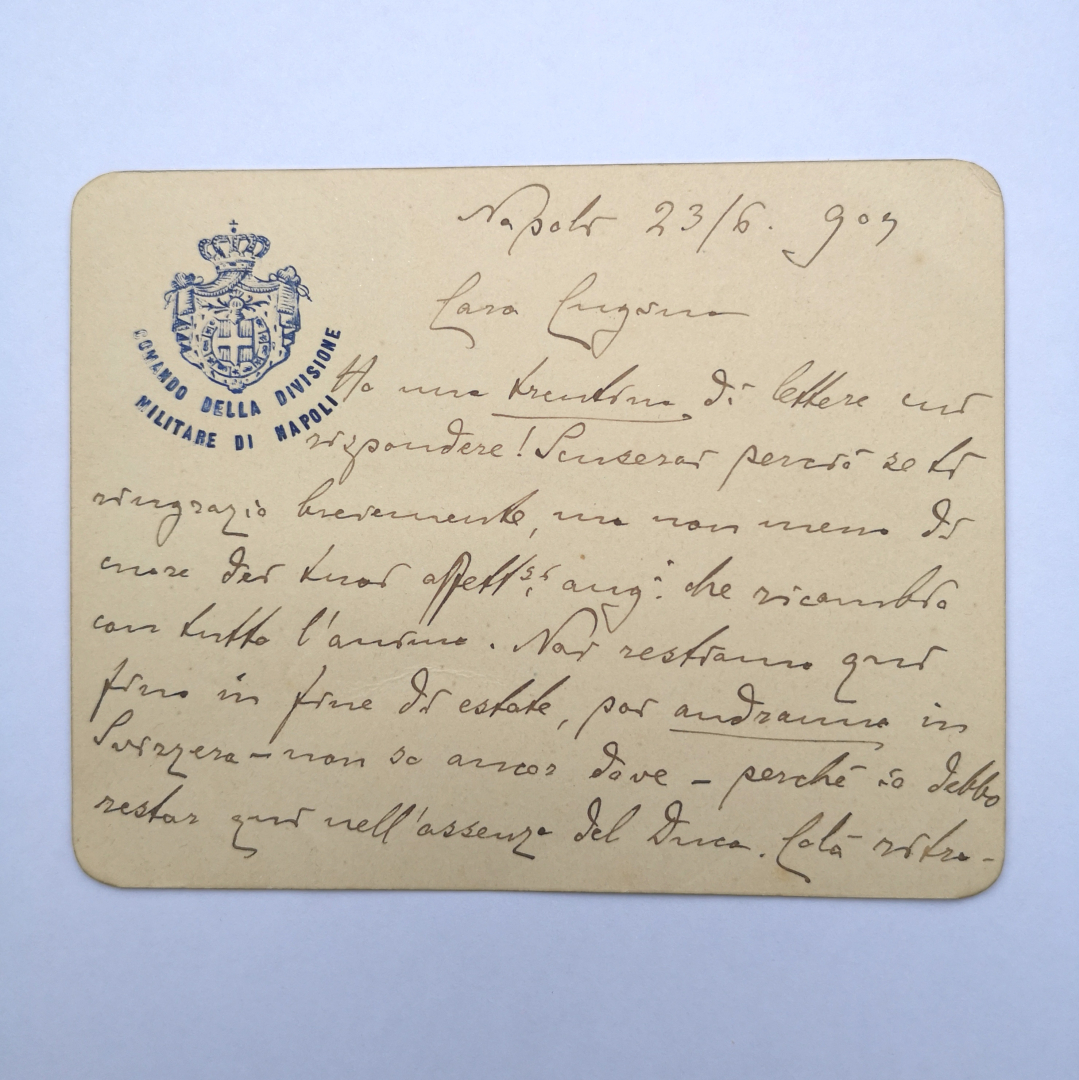 COMANDO DELLA DIVISIONE
MILITARE DI NAPOLI
Napoli 23/6. 907
Cara Cugina
Ho una trentina di lettere cui
rispondere! Scuserai perciò se ti
ringrazio brevemente, ma non meno di
cuore dei tuoi affett.si aug.i che ricambio
con tutto l'animo. Noi restiamo qui
fino in fine di estate, poi andranno in
Svizzera – non so ancor dove – perché io debbo
restar qui nell'assenza del Duca. Colà ritro-